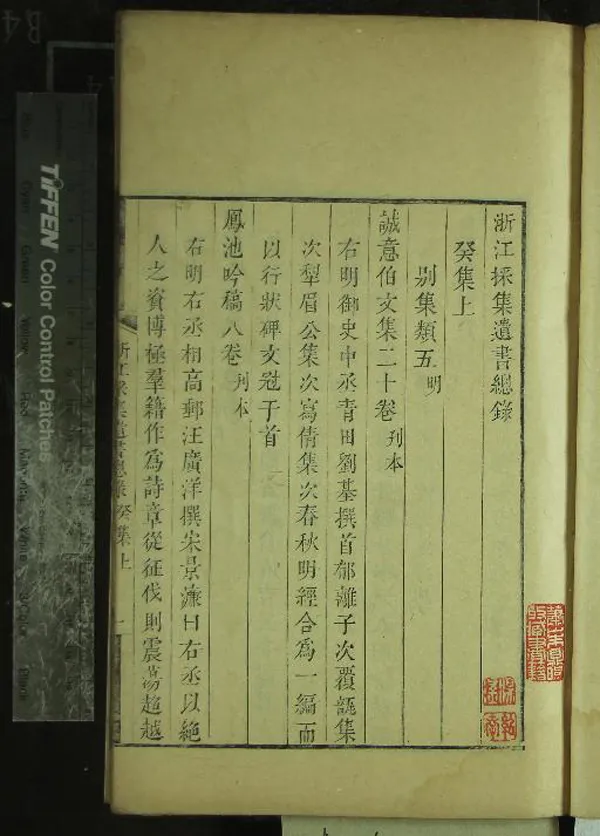 浙江採集遺書總錄
癸集上
別集類五 明
誠意伯文集二十卷 刋本
右明御史中丞青田劉基撰首郁離子次覆瓿集
次犂眉公集次寫情集次春秋明經合為一編而
以行狀碑文冠于首
鳳池吟稿八卷 刋本
右明右丞相高郵汪廣洋撰宋景濂曰右丞以絶
人之資博極羣籍作為詩章從征伐則震蕩超越
浙江採集遺書總錄 癸集上 一
TIFFEN Color Control Patches
B4